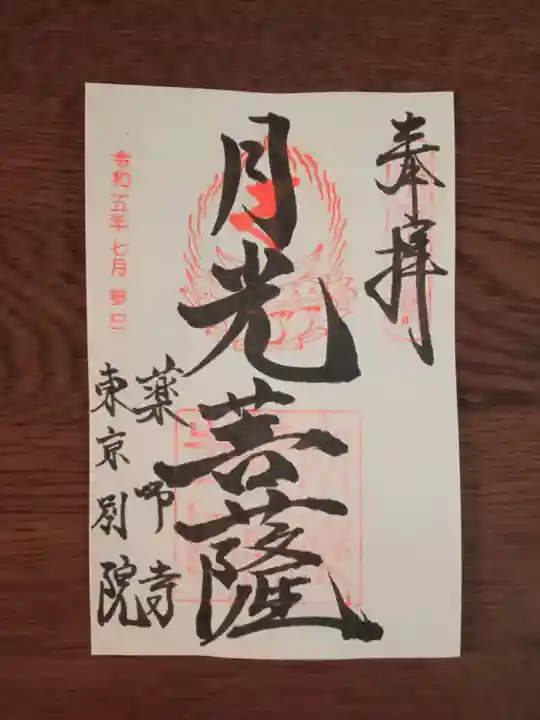 奉拝
月光菩薩
薬師寺
東京別院
令和五年七月参日